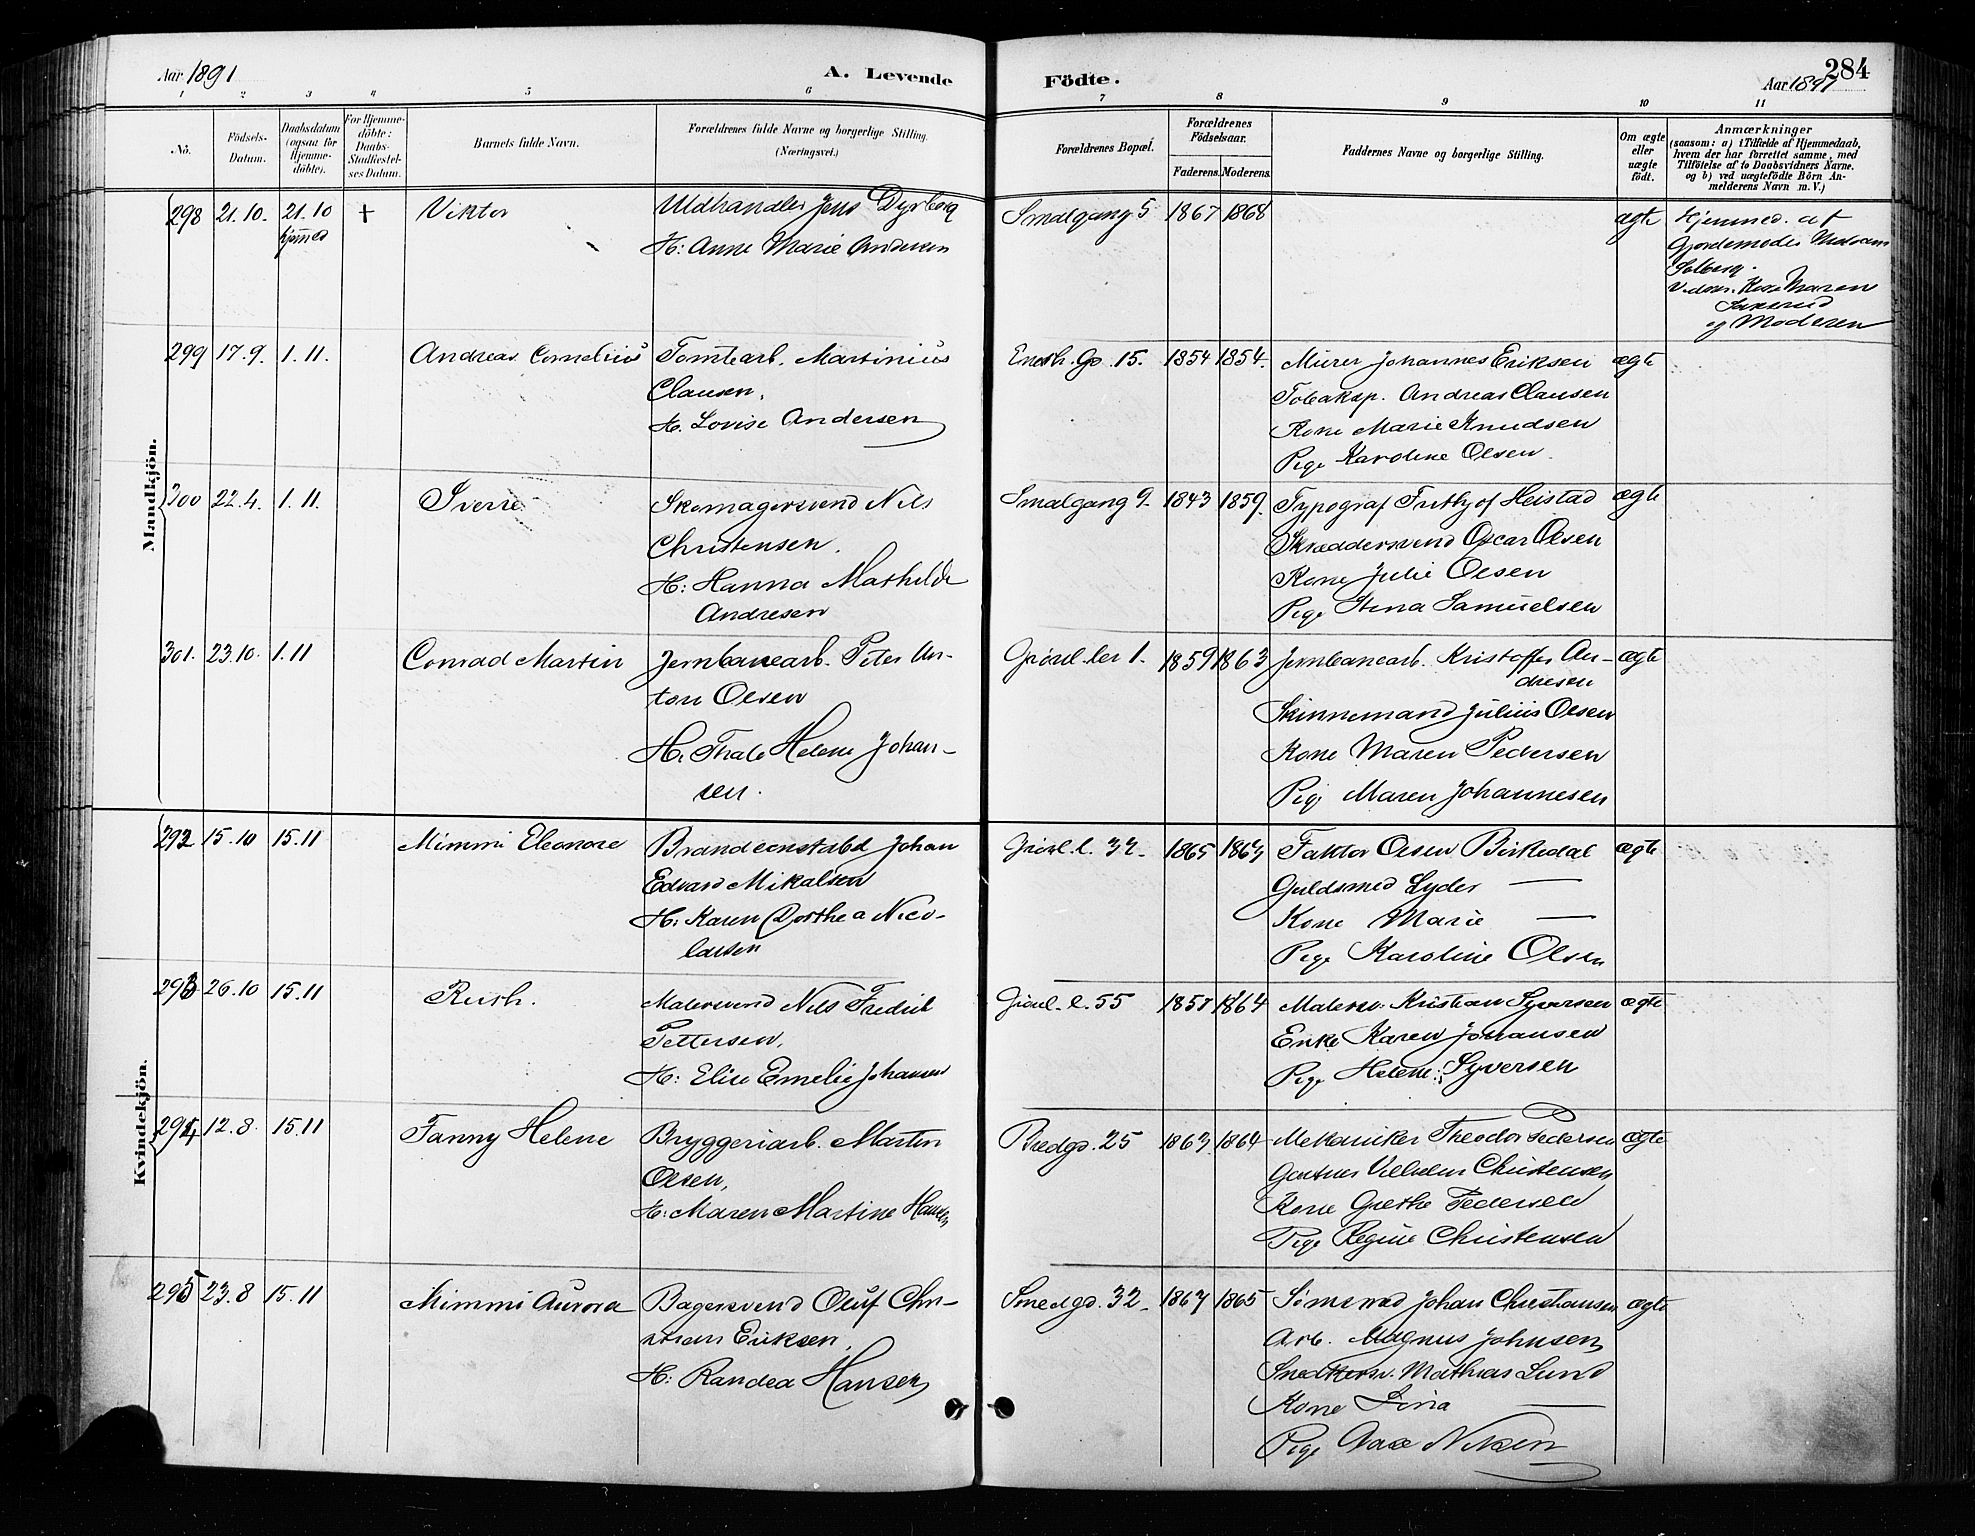 Aar 1891
A. Levende
Födte.
284
Aar 1891
1 2 3 4 5 6 7 8 9 10 11
No.
Födsels-Datum.
Daabsdatum (ogsaa for Hjemme-döbte).
For Hjemme-döbte: Daabs-Stadfæstel-ses Datum.
Barnets fulde Navn.
Forældrenes fulde Navne og borgerlige Stilling. (Næringsvei.)
Forældrenes Bopæl.
Forældrenes Födselsaar.
Faderens. Moderens.
Faddernes Navne og borgerlige Stilling.
Om ægte eller uægte födt.
Anmærkninger
(saasom: a) i Tilfælde af Hjemmedaab, hvem der har forrettet samme, med Tilföielse af to Daabsvidners Navne, og b) ved uægtefödte Börn An-melderens Navn m. V.)
Mandkjön.
298 21.10. 21.10 + Viktor
hjemmed
Uldhandler Jens Dyrberg
H: Anne Marie Andersen
Smalgang 5 1867 1868 ægte
Hjemmed. af
Gjordemoder Madam
Solberg.
Vidner. Kone Maren
og Moderen
299 17.9. 1.11. Andreas Cornelius
Tomtearb. Martinius
Clausen,
H. Lovise Andersen
Enerh.gd. 15. 1854 1854. ægte
Murer Johannes Eriksen
Andreas Clausen
Kone Marie Knudsen
Pige Karoline Olsen.
300 22.4. 1.11. Sverre
Skomagersvend Nils
Christensen.
H: Hanna Mathilde
Andresen
Smalgang 9 1843 1859. ægte
Typograf Frithjof Heistad
Skræddersvend Oscar Olsen
Kone Julie Olsen
Pige Stina Samuelsen
301. 23.10. 1.11 Conrad Martin
Jernbanearb. Peter An-
ton Olsen
H. Thale Helene Johan-
sen.
Grönl.ler 1. 1859 1863 ægte
Jernbanearb. Kristoffer An-
dresen
Skinnemand Julius Olsen
Kone Maren Pedersen
Pige Maren Johannesen
Kvindekjön.
292 15.10 15.11 Mimmi Eleonore
Brandconstabel Johan
Edvard Mikalsen
H. Karen Dorthea Nico-
laisen
Grönl.l. 32. 1865 1863 ægte
Faktor Olsen Birkedal
Guldsmed Lyder —
Kone Marie —
Pige Karoline Olsen
293 26.10 15.11 Ruth.
Malersvend Nils Fredrik
Pettersen,
H: Elise Emelie Johansen
Grönl. l. 55 1864 ægte
Malersv. Kristian Syversen
Enke Karen Johansen
Pige Helene Syversen
294 12.8. 15.11 Fanny Helene
Bryggeriarb. Martin
Olsen,
H: Maren Martine Hansen
Bredgd. 25 1863. 1864 ægte
Mekaniker Theodor Pedersen
Gartner Vilhelm Christensen
Kone Grethe Pedersen
Pige Regine Christensen
295 23.8 15.11 Mimmi Aurora
Bagersvend Oluf Chri-
stian Eriksen.
H: Randea Hansen
Smedgd. 32. 1867 1865 ægte
Sömand Johan Christiansen
Arb. Magnus Johnsen
Snedkersv. Mathias Lund
Kone Lina —
Pige Aase Nilsen